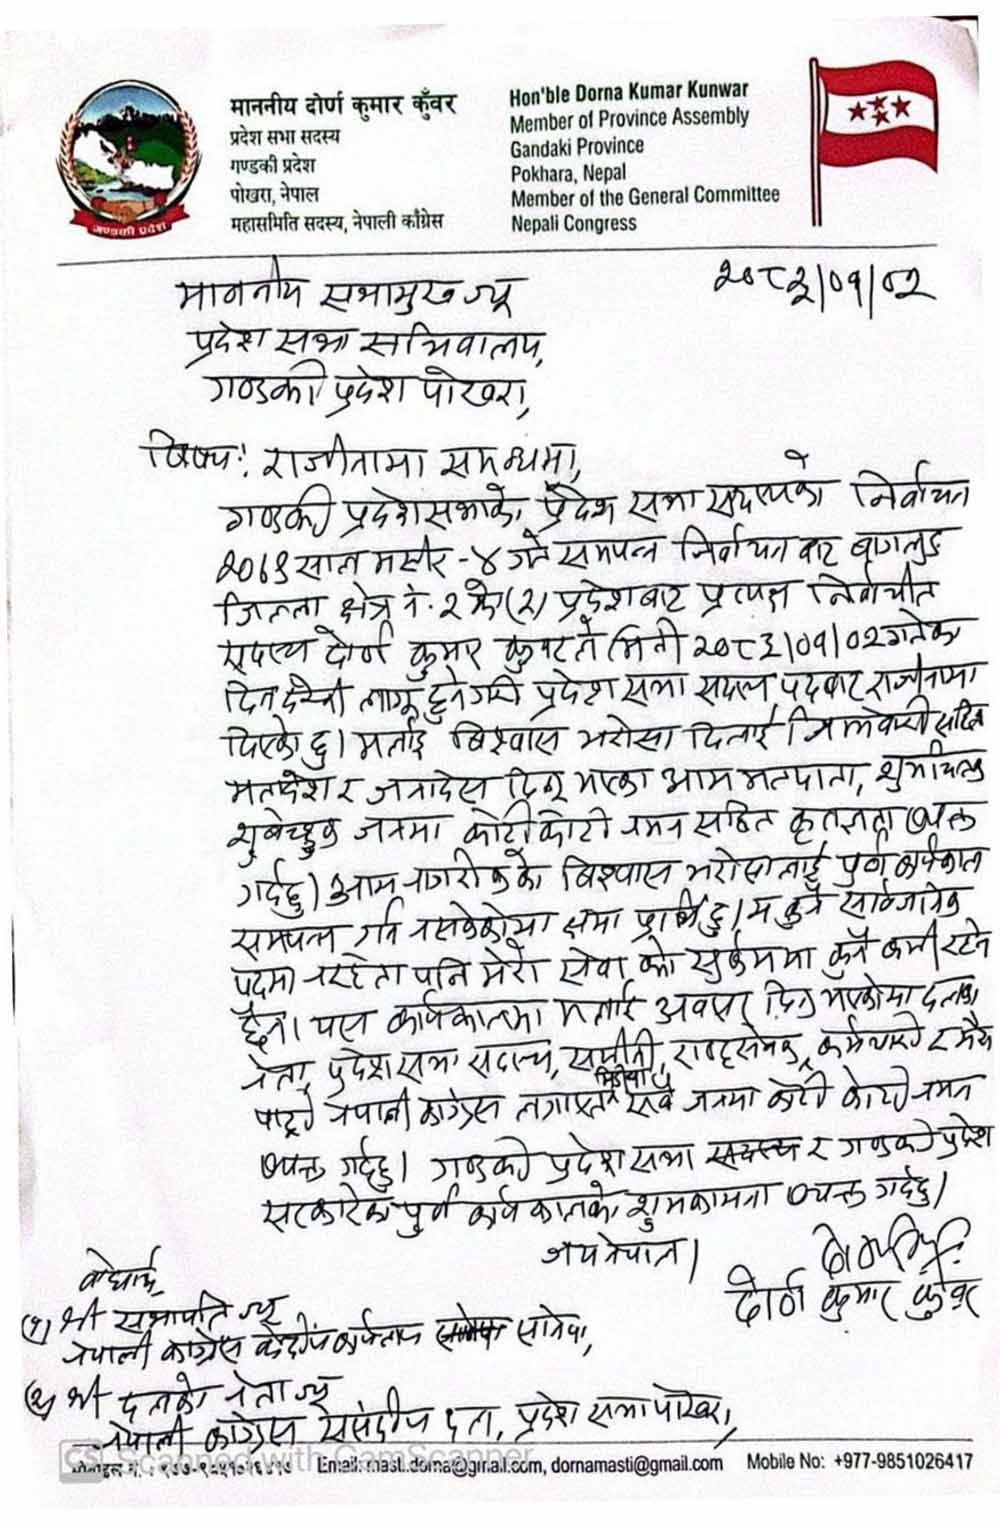 माननीय दोर्ण कुमार कुँवर
प्रदेश सभा सदस्य
गण्डकी प्रदेश
पोखरा, नेपाल
महासमिति सदस्य, नेपाली काँग्रेस
Hon'ble Dorna Kumar Kunwar
Member of Province Assembly
Gandaki Province
Pokhara, Nepal
Member of the General Committee
Nepali Congress
गण्डकी प्रदेश
२०८३/०१/०२
माननीय सभामुख ज्यू
प्रदेश सभा सचिवालय,
गण्डकी प्रदेश पोखरा,
विषय: राजीनामा सम्बन्धमा,
गण्डकी प्रदेशसभाको प्रदेश सभा सदस्यको निर्वाचन
२०७९ साल मंसीर -४ गते सम्पन्न निर्वाचन बाट बागलुङ
जिल्ला क्षेत्र नं. २ को (२) प्रदेशबाट प्रत्यक्ष निर्वाचीत
सदस्य दोर्ण कुमार कुवरले मिती २०८३/०१/०२ गतेका
दिन देखी लागू हुने गरी प्रदेश सभा सदस्य पदबाट राजीनामा
दिएको छु। मलाई बिश्वास भरोसा दिलाई सहित
मतदेश र जनादेस दिनु भएका आम मतदाता, शुभचिन्तक
शुवेच्छुक जनमा कोटी कोटी नमन सहित कृतज्ञता व्यक्त
गर्दछु। आम नागरीकको बिश्वास भरोसालाई पुर्ण कार्यकाल
सम्पन्न गर्न नसकेकोमा क्षमा प्रार्थी छु। म कुनै सार्वजनिक
पदमा नरहेता पनि मेरो सेवा को सुकर्ममा कुनै कमी रहने
छैन। यस कार्यकालमा मलाई अवसर दिनु भएकोमा दलका
नेता, प्रदेश सभा सदस्य, समीती, राष्ट्रसेवक, कर्मचारी र मेरो
मिडीया
पार्टी नेपाली काग्रेस लगायत सबै जनमा कोटी कोटी नमन
व्यक्त गर्दछु। गण्डकी प्रदेश सभा सदस्य र गण्डकी प्रदेश
सरकारको पुर्ण कार्यकालको शुभकामना व्यक्त गर्दछु।
जय नेपाल।
दोर्ण कुमार कुँवर
बोधार्थ,
(१) श्री सभापति ज्यू
नेपाली काग्रेस केन्द्रीय कार्यालय सानेपा,
(२) श्री दलको नेता ज्यू
नेपाली काग्रेस संसदीय दल, प्रदेश सभा पोखरा,
CS Scanned with CamScanner
Email: masti.dorna@gmail.com, dornamasti@gmail.com
Mobile No: +977-9851026417